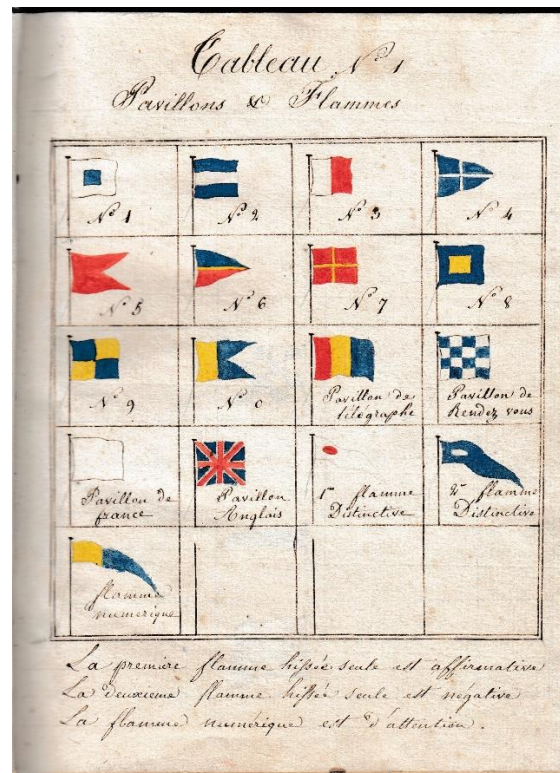 Tableau N° 1
Pavillons & Flammes
N° 1
N° 2
N° 3
N° 4
N° 5
N° 6
N° 7
N° 8
N° 9
N° 0
Pavillon de
télégraphe
Pavillon de
Rendez vous
Pavillon de
france
Pavillon
Anglais
1re flamme
Distinctive
2e flamme
Distinctive
flamme
numerique
La premiere flamme hissée seule est affirmative
La deuxieme flamme hissée seule est negative
La flamme numerique est d'attention.